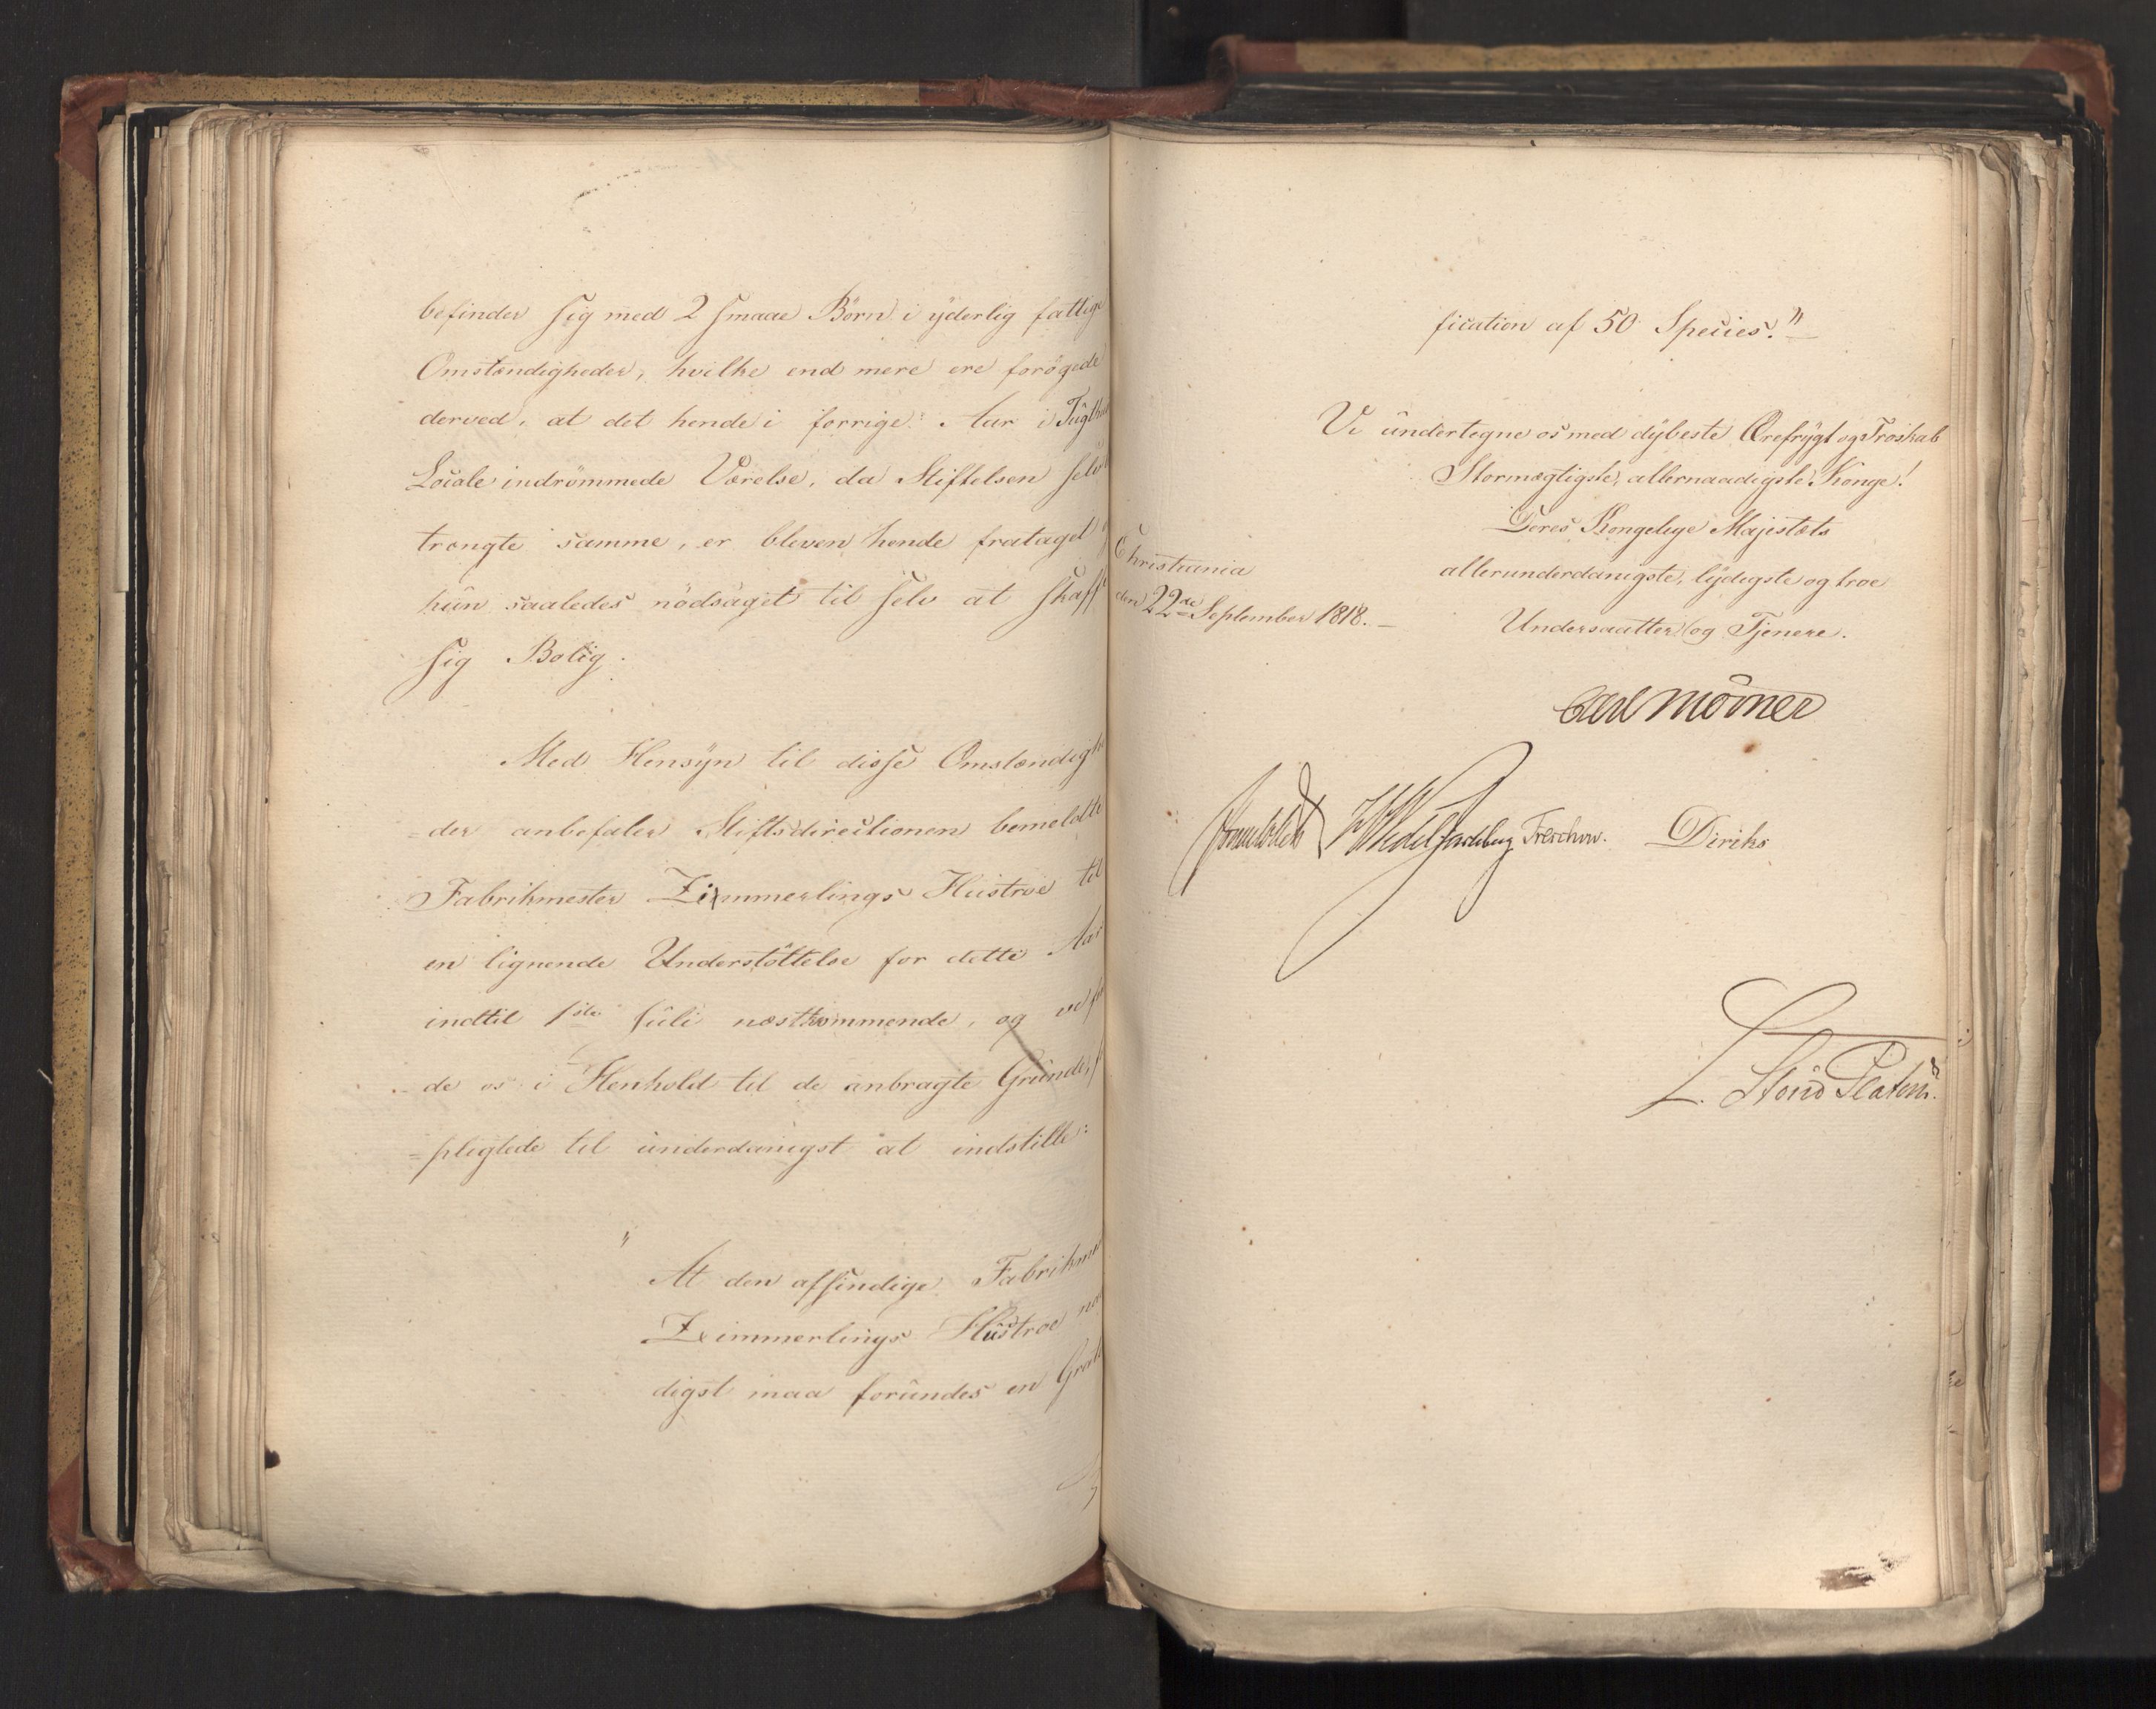 befinder sig med 2 smaae Börn i yderlig fattige
Omstændigheder, hvilke end mere ere forögede
derved, at det hende i forrige Aar i Tugthu
Locale indrömmede Værelse, da Stiftelsen selv
trængte samme, er bleven hende frataget
hun saaledes nödsaget til selv at skaffe
sig Bolig.
Med Hensyn til disse Omstændighe
=der anbefaler Stiftsdirectionen bemeldte
Fabrikmester Zimmerlings Hustroe til
en lignende Understöttelse for dette Aar
indtil 1ste Juli næstkommende, og
de os i Henhold til de anbragte Grunde,
=pligtede til underdanigst at indstille:
"At den afsindige Fabrikme
Zimmerlings Hustroe naa
digst maa forundes en Grati
fication af 50 Species."
Vi undertegne os med dybeste Ærefrygt og Troskab
Stormægtigste, allernaadigste Konge!
Deres Kongelige Majestæts
allerunderdanigste, lydigste og troe
Undersaatter og Tjenere.
Christiania
den 22de September 1818.
Carl Mörner
Sommerhielm Wedel Jarlsberg Treschow. Diriks
L. Stoud Platou